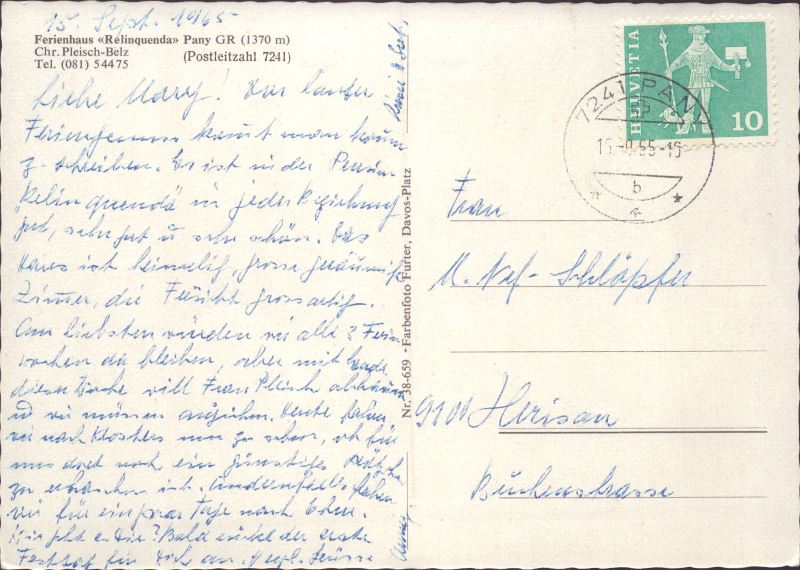 15. Sept. 1965
Ferienhaus «Relinquenda» Pany GR (1370 m)
Chr. Pleisch-Belz (Postleitzahl 7241)
Tel. (081) 54475
Liebe Mary! Vor lauter
Feriengenuss kommt man kaum
z. schreiben. Es ist in der Pension
Relinquenda in jeder Beziehung
gut, sehr gut u sehr schön. Das
Haus ist heimelig, grosse geräumige
Zimmer, die grossartig.
Am liebsten würden wir alle 3 Ferien-
wochen da bleiben, aber mit Ende
dieser Woche will Frau Pleisch
und wir müssen ausziehen. Heute fahren
wir nach Klosters um zu sehen, ob für
uns dort noch ein günstiges Plätzchen
zu erhaschen ist. Andernfalls fahren
wir für ein paar Tage nach
Wie geht es Dir? Bald winkt der erste
Festtag für Dich an. Herzl. Grüsse
Nr. 38-659 · Farbenfoto Furter, Davos-Platz
HELVETIA
10
7241 PANY
15.-9.65-15
b
Frau
M. Naf-Schläpfer
9100 Herisau
Buchenstrasse